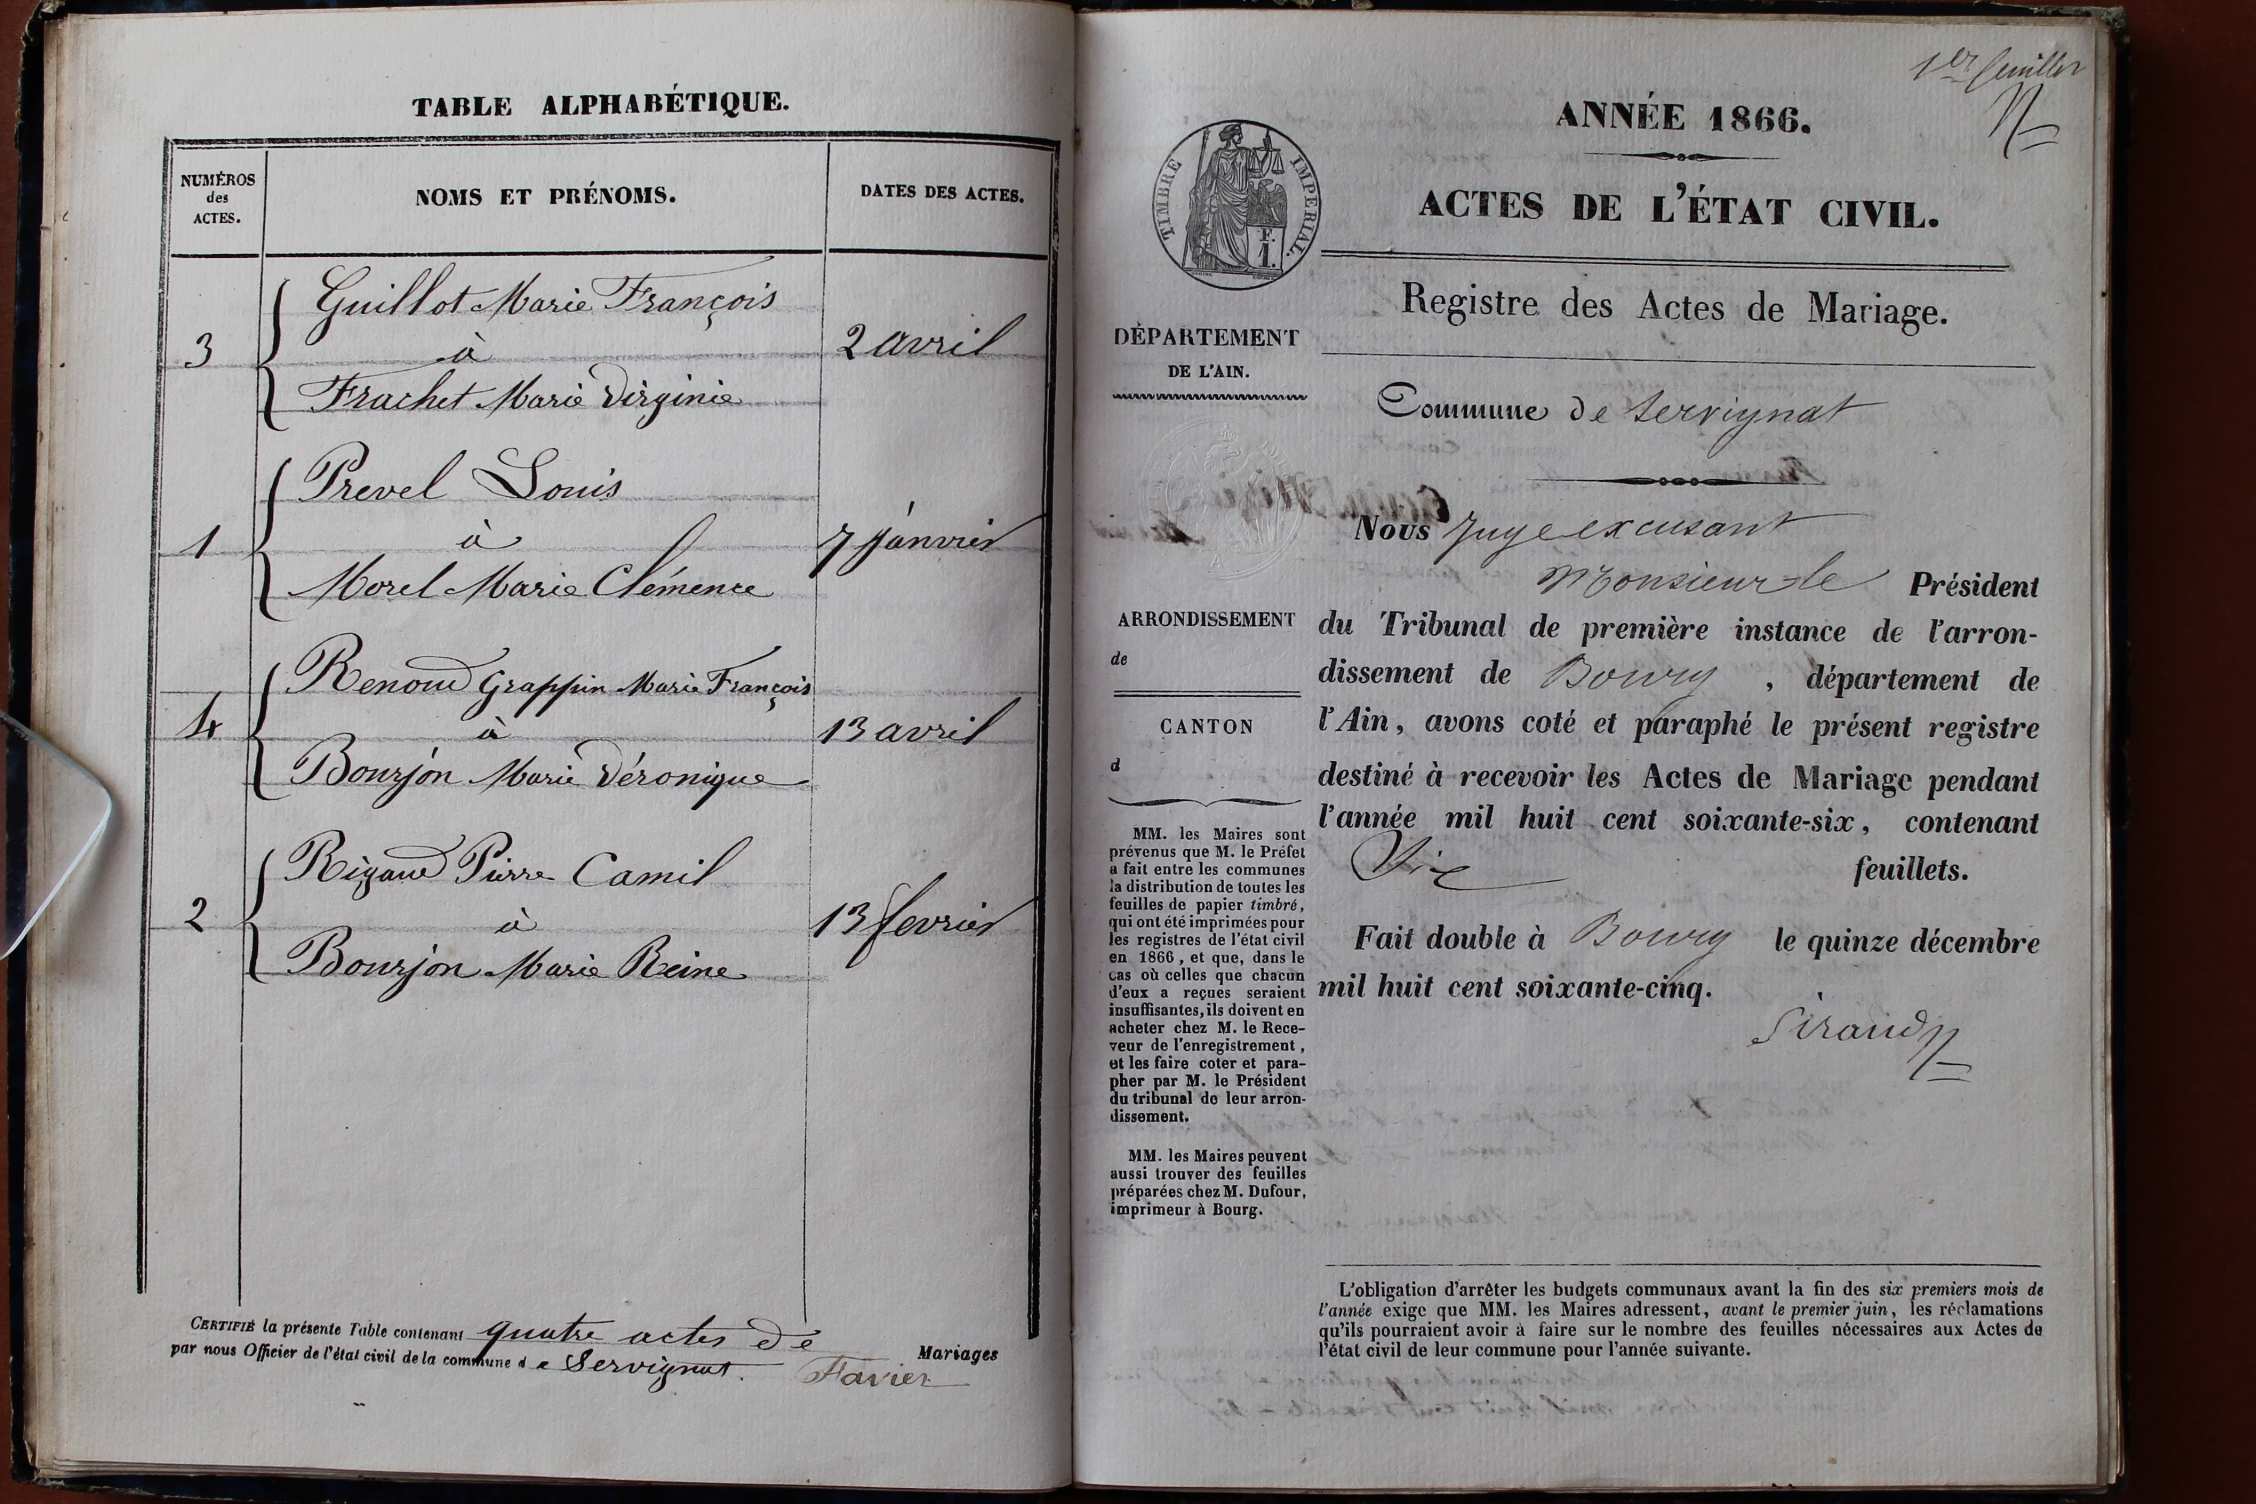 TABLE ALPHABÉTIQUE.
NUMÉROS
des
ACTES.
NOMS ET PRÉNOMS.
DATES DES ACTES.
Guillot Marie François
3
à
2 avril
Frachet Marie Virginie
Prevel Louis
1
à
7 janvier
Morel Marie Clémence
Renoud Grappin Marie François
4
à
13 avril
Bourjon Marie Véronique
Rigaud Pierre Camil
2
à
13 fevrier
Bourjon Marie Reine
CERTIFIÉ la présente Table contenant quatre actes de
Mariages
par nous Officier de l'état civil de la commune de Servignat.
Favier
1er feuillet
ANNÉE 1866.
TIMBRE IMPERIAL.
F.
1.
ACTES DE L'ÉTAT CIVIL.
Registre des Actes de Mariage.
DÉPARTEMENT
DE L'AIN.
Commune de Servignat
Nous Juge excusant
Monsieur le Président
du Tribunal de première instance de l'arron-
dissement de Bourg, département de
l'Ain, avons coté et paraphé le présent registre
destiné à recevoir les Actes de Mariage pendant
l'année mil huit cent soixante-six, contenant
Six feuillets.
Fait double à Bourg le quinze décembre
mil huit cent soixante-cinq.
Siraud
ARRONDISSEMENT
de
CANTON
d
MM. les Maires sont
prévenus que M. le Préfet
a fait entre les communes
la distribution de toutes les
feuilles de papier timbré,
qui ont été imprimées pour
les registres de l'état civil
en 1866, et que, dans le
cas où celles que chacun
d'eux a reçues seraient
insuffisantes, ils doivent en
acheter chez M. le Rece-
veur de l'enregistrement,
et les faire coter et para-
pher par M. le Président
du tribunal de leur arron-
dissement.
MM. les Maires peuvent
aussi trouver des feuilles
préparées chez M. Dufour,
imprimeur à Bourg.
L'obligation d'arrêter les budgets communaux avant la fin des six premiers mois de
l'année exige que MM. les Maires adressent, avant le premier juin, les réclamations
qu'ils pourraient avoir à faire sur le nombre des feuilles nécessaires aux Actes de
l'état civil de leur commune pour l'année suivante.